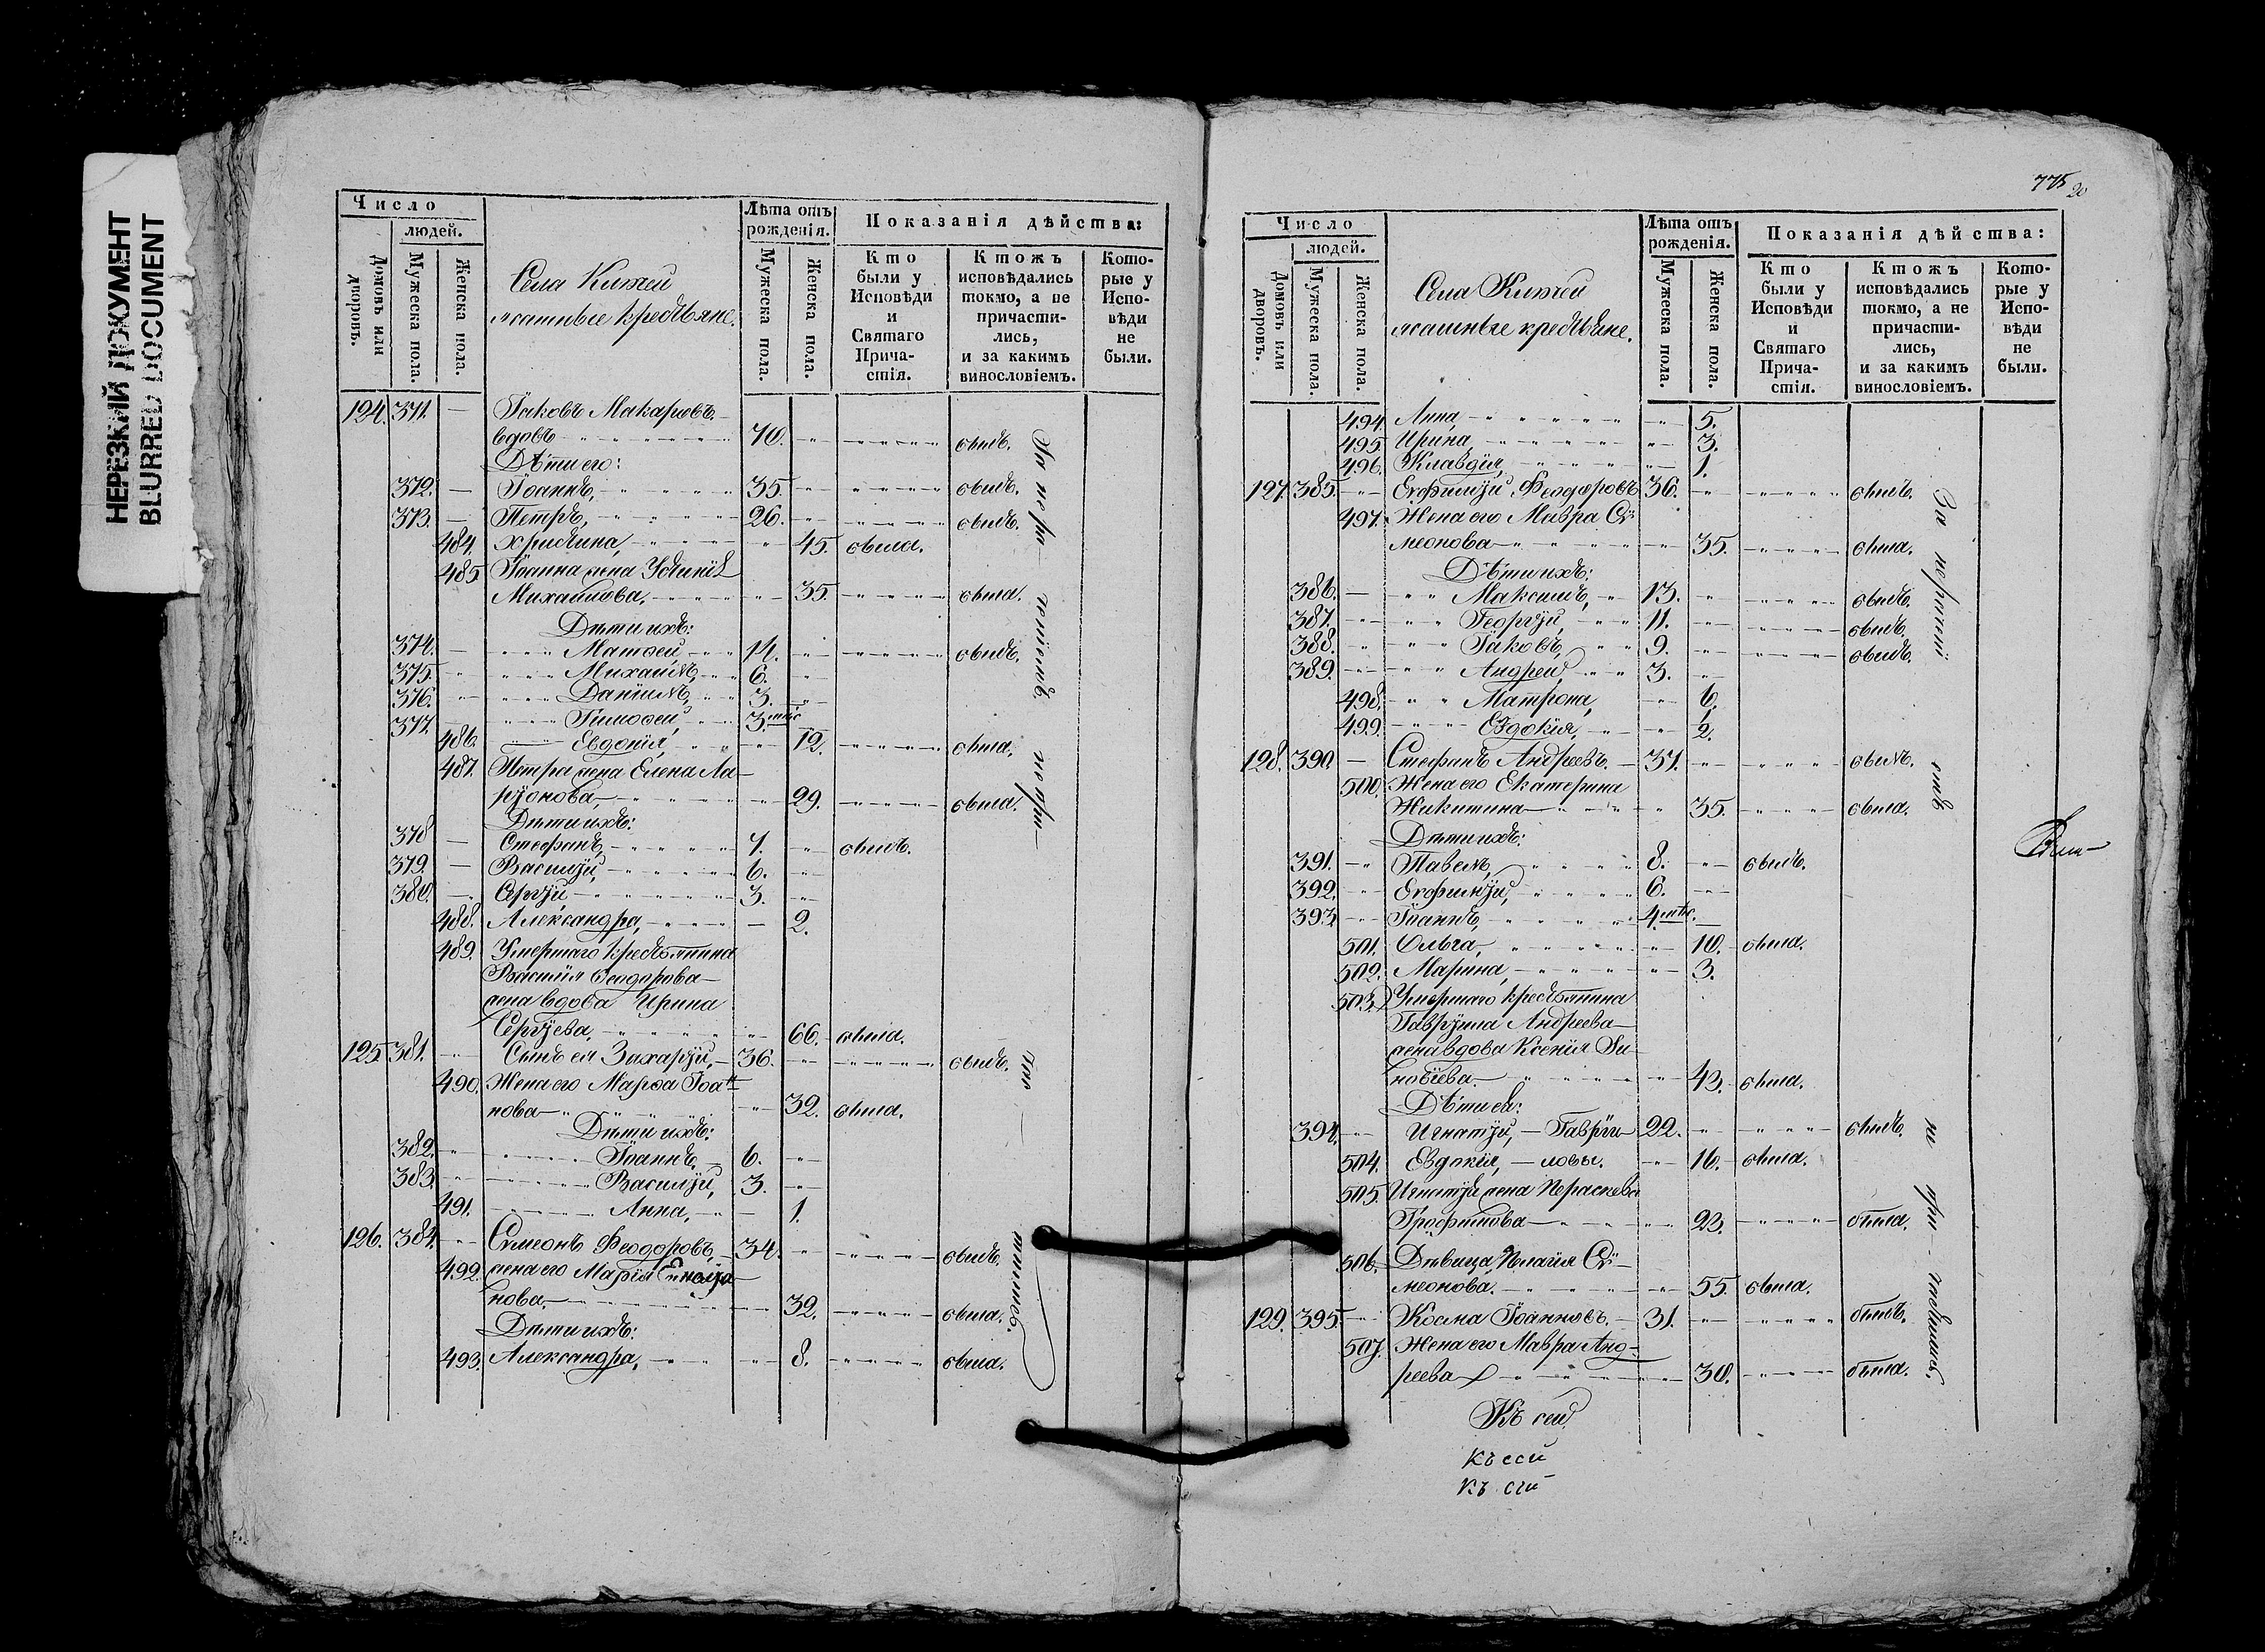 НЕРЕЗКИЙ ДОКУМЕНТ
BLURRED DOCUMENT
Число
людей.
Домовъ или дворовъ.
Мужеска пола.
Женска пола.
Села Китчей
ясашные крестьяне.
Лѣта отъ рожденія.
Мужеска пола.
Женска пола.
Показанія дѣйства:
Кто были у Исповѣди и Святаго Прича-стія.
Ктожъ исповѣдались токмо, а не причасти-лись, и за какимъ винословіемъ.
Кото-рые у Испо-вѣди не были.
124. 371. — Іаковъ Макаровъ
вдовъ 70. былъ.
Дѣти его:
372. — Іоаннъ, 35. былъ.
373. — Петръ, 26. былъ.
484. Христина, 45. была.
485 Іоанна жена Устинія
Михайлова, 35. была.
Дѣти ихъ:
374. — Матѳей 14. былъ.
375. Михаилъ, 6.
376. Даніилъ, 3.
377. Тимоѳей, 3 мѣс
486. Евдокія, 12. была.
487. Петра жена Елена Ла-
ріонова, 29. была.
Дѣти ихъ:
378 — Стефанъ, 7. былъ.
379. — Василій, 6.
380. Сергій 3.
488. Александра, 2.
489. Умершаго крестьянина
Василія Ѳеодорова
жена вдова Ирина
Сергіева, 66. была.
125 381. Сынъ ея Захарій, 36. былъ.
490. Жена его Марѳа Іоан-
нова 32. была.
Дѣти ихъ:
382. Іоаннъ, 6.
383. Василій, 3.
491. Анна, 1.
126. 384. Симеонъ Ѳеодоровъ, 34. былъ.
492. жена его Марія
нова. 32. была.
Дѣти ихъ:
493. Александра, 8. была.
775
20
Число
людей.
Домовъ или дворовъ.
Мужеска пола.
Женска пола.
Села Китчей
ясашные крестьяне.
Лѣта отъ рожденія.
Мужеска пола.
Женска пола.
Показанія дѣйства:
Кто были у Исповѣди и Святаго Прича-стія.
Ктожъ исповѣдались токмо, а не причасти-лись, и за какимъ винословіемъ.
Кото-рые у Испо-вѣди не были.
494. Анна, 5.
495. Ирина, 3.
496. Клавдія, 1.
127. 385. Евфимій Ѳеодоровъ 36. былъ.
497. Жена его Мавра Сѵ-
меонова 35. была.
Дѣти ихъ:
386. — Максимъ, 13. былъ.
387. Георгій, 11. былъ.
388. Іаковъ, 9. былъ.
389. Андрей, 3.
498. Матрона, 6.
499. Евдокія, 2.
128. 390. — Стефанъ Андреевъ. 37. былъ.
500. Жена его Екатерина
Никитина 35. была.
Дѣти ихъ:
391. Павелъ, 8. былъ.
392. Евфимій, 6.
393 Іоаннъ, 4 мѣс.
501. Ольга, 10. была.
502. Марина, 3.
503. Умершаго крестьянина
Гавріила Андреева
жена вдова Ксенія Зи-
новіева. 43. была.
Дѣти ея:
394. Игнатій, — Гавріи- 22. былъ.
504. Евдокія, — ловы. 16. была.
505. Игнатія жена Параскева
Трофимова 23. была.
506. Дѣвица Пелагія Сѵ-
меонова. 55. была.
129. 395. Косма Іоанновъ. 31. былъ.
507. Жена его Мавра Анд-
реева 30. была.
За нераченіемъ не при-
частились
Къ сей
Къ сей
Къ сей